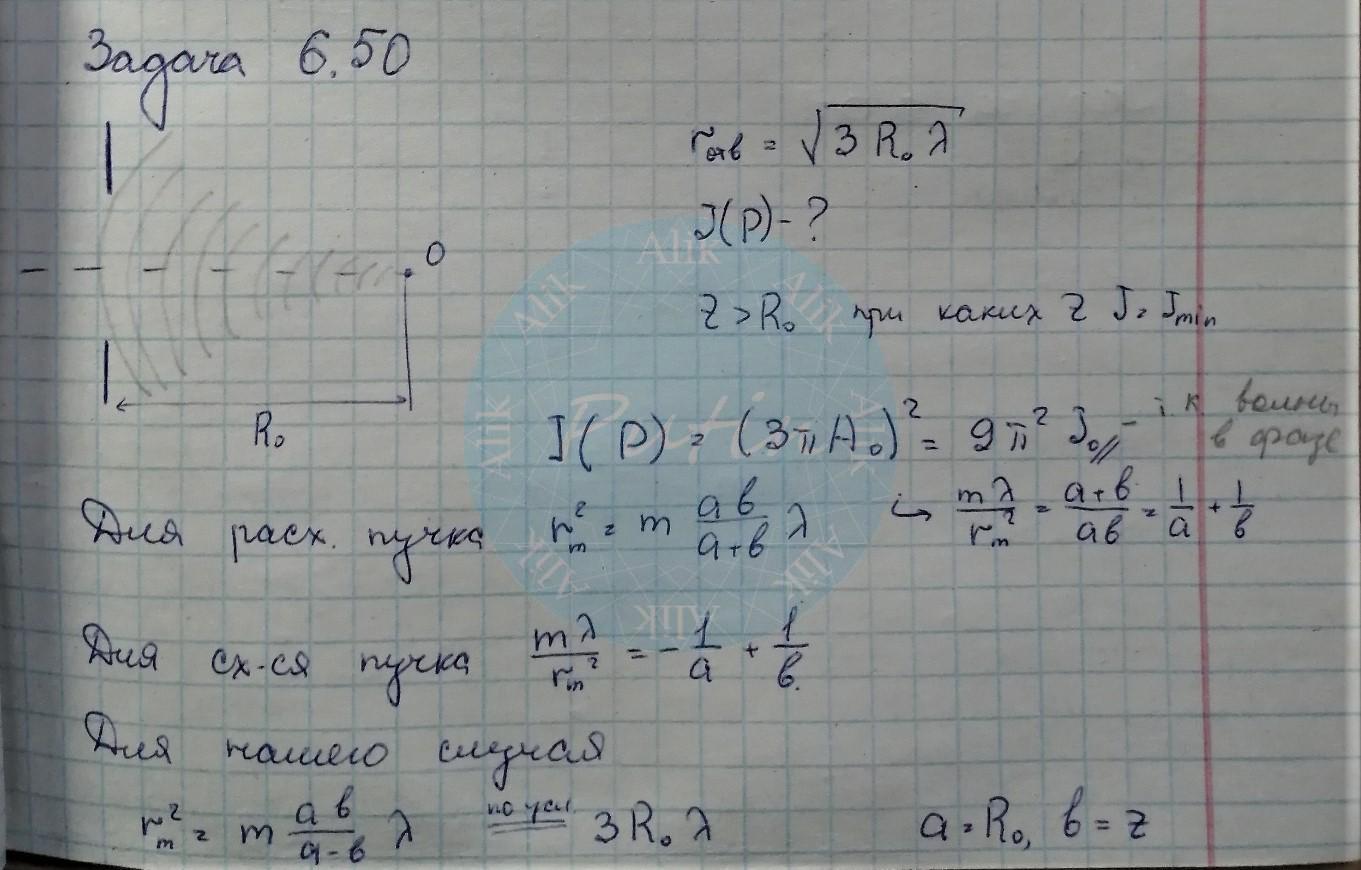 Задача 6.50
r_отв = √(3 R₀ λ)
J(P) - ?
O
Z > R₀ при каких Z J = J_min
R₀
J(P) = (3πA₀)² = 9π² J₀ // - т к волны
в фазе
Для расх. пучка r_m² = m ab/(a+b) λ ↪ mλ/r_m² = (a+b)/ab = 1/a + 1/b
Для сх-ся пучка mλ/r_m² = - 1/a + 1/b.
Для нашего случая
r_m² = m ab/(a-b) λ по усл. = 3 R₀ λ a = R₀, b = z
Alik Alik Alik Alik Alik Alik Alik Alik